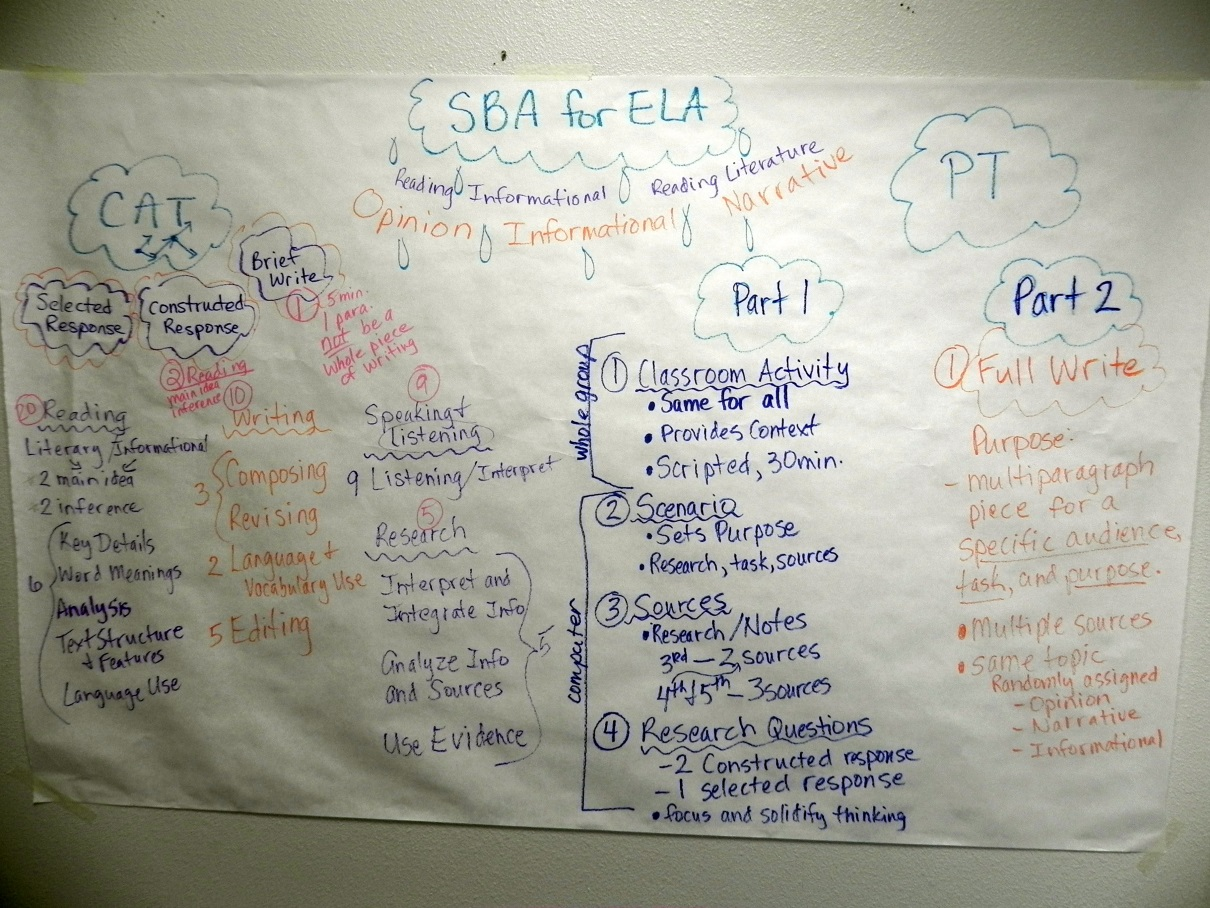 SBA for ELA
Reading Informational
Reading Literature
Opinion
Informational
Narrative
CAT
Selected
Response
Constructed
Response
Brief
Write
1
5 min.
1 para.
not be a
whole piece
of writing
2 Reading
main idea
inference
20 Reading
Literary/Informational
2 main idea
2 inference
6
Key Details
Word Meanings
Analysis
Text Structure
+ Features
Language Use
10
Writing
3
Composing
Revising
2 Language +
Vocabulary Use
5 Editing
9
Speaking +
Listening
9 Listening/Interpret
5
Research
Interpret and
Integrate Info
Analyze Info
and Sources
Use Evidence
5
PT
Part 1
whole group
1 Classroom Activity
• Same for all
• Provides Context
• Scripted, 30min.
computer
2 Scenario
• Sets Purpose
• Research, task, sources
3 Sources
• Research/Notes
3rd – 2 sources
4th/5th – 3 sources
4 Research Questions
- 2 Constructed response
- 1 selected response
• focus and solidify thinking
Part 2
1 Full Write
Purpose:
- multiparagraph
piece for a
specific audience,
task, and purpose.
• Multiple sources
• same topic
Randomly assigned
- Opinion
- Narrative
- Informational